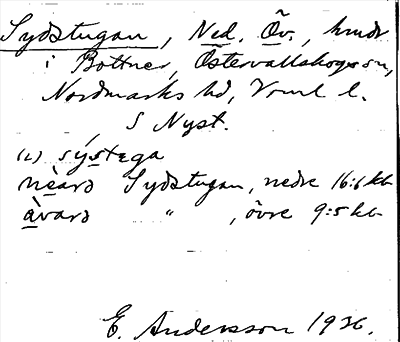 Sydstugan, Ned. Öv., hmdr
i Bottner, Östervallskogs sn,
Nordmarks hd, Vrml l.
S Nyst.
(1) sýstega
nèarə Sydstugan, nedre 16:6 kb
àvarə " , övre 9:5 kb
E. Andersson 1926.